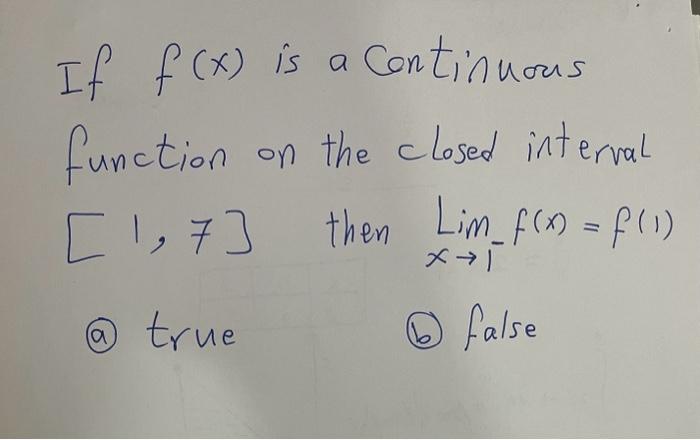 If f(x) is a continuous
function on the closed interval
[1, 7] then Lim f(x) = f(1)
x → 1⁻
ⓐ true ⓑ false